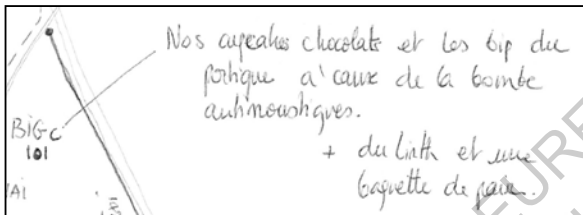 Nos cupcakes chocolats et les bip du
portique à cause de la bombe
antimoustiques.
BiGc
101
+ du Linth et une
baguette de pain.
AI
EURE